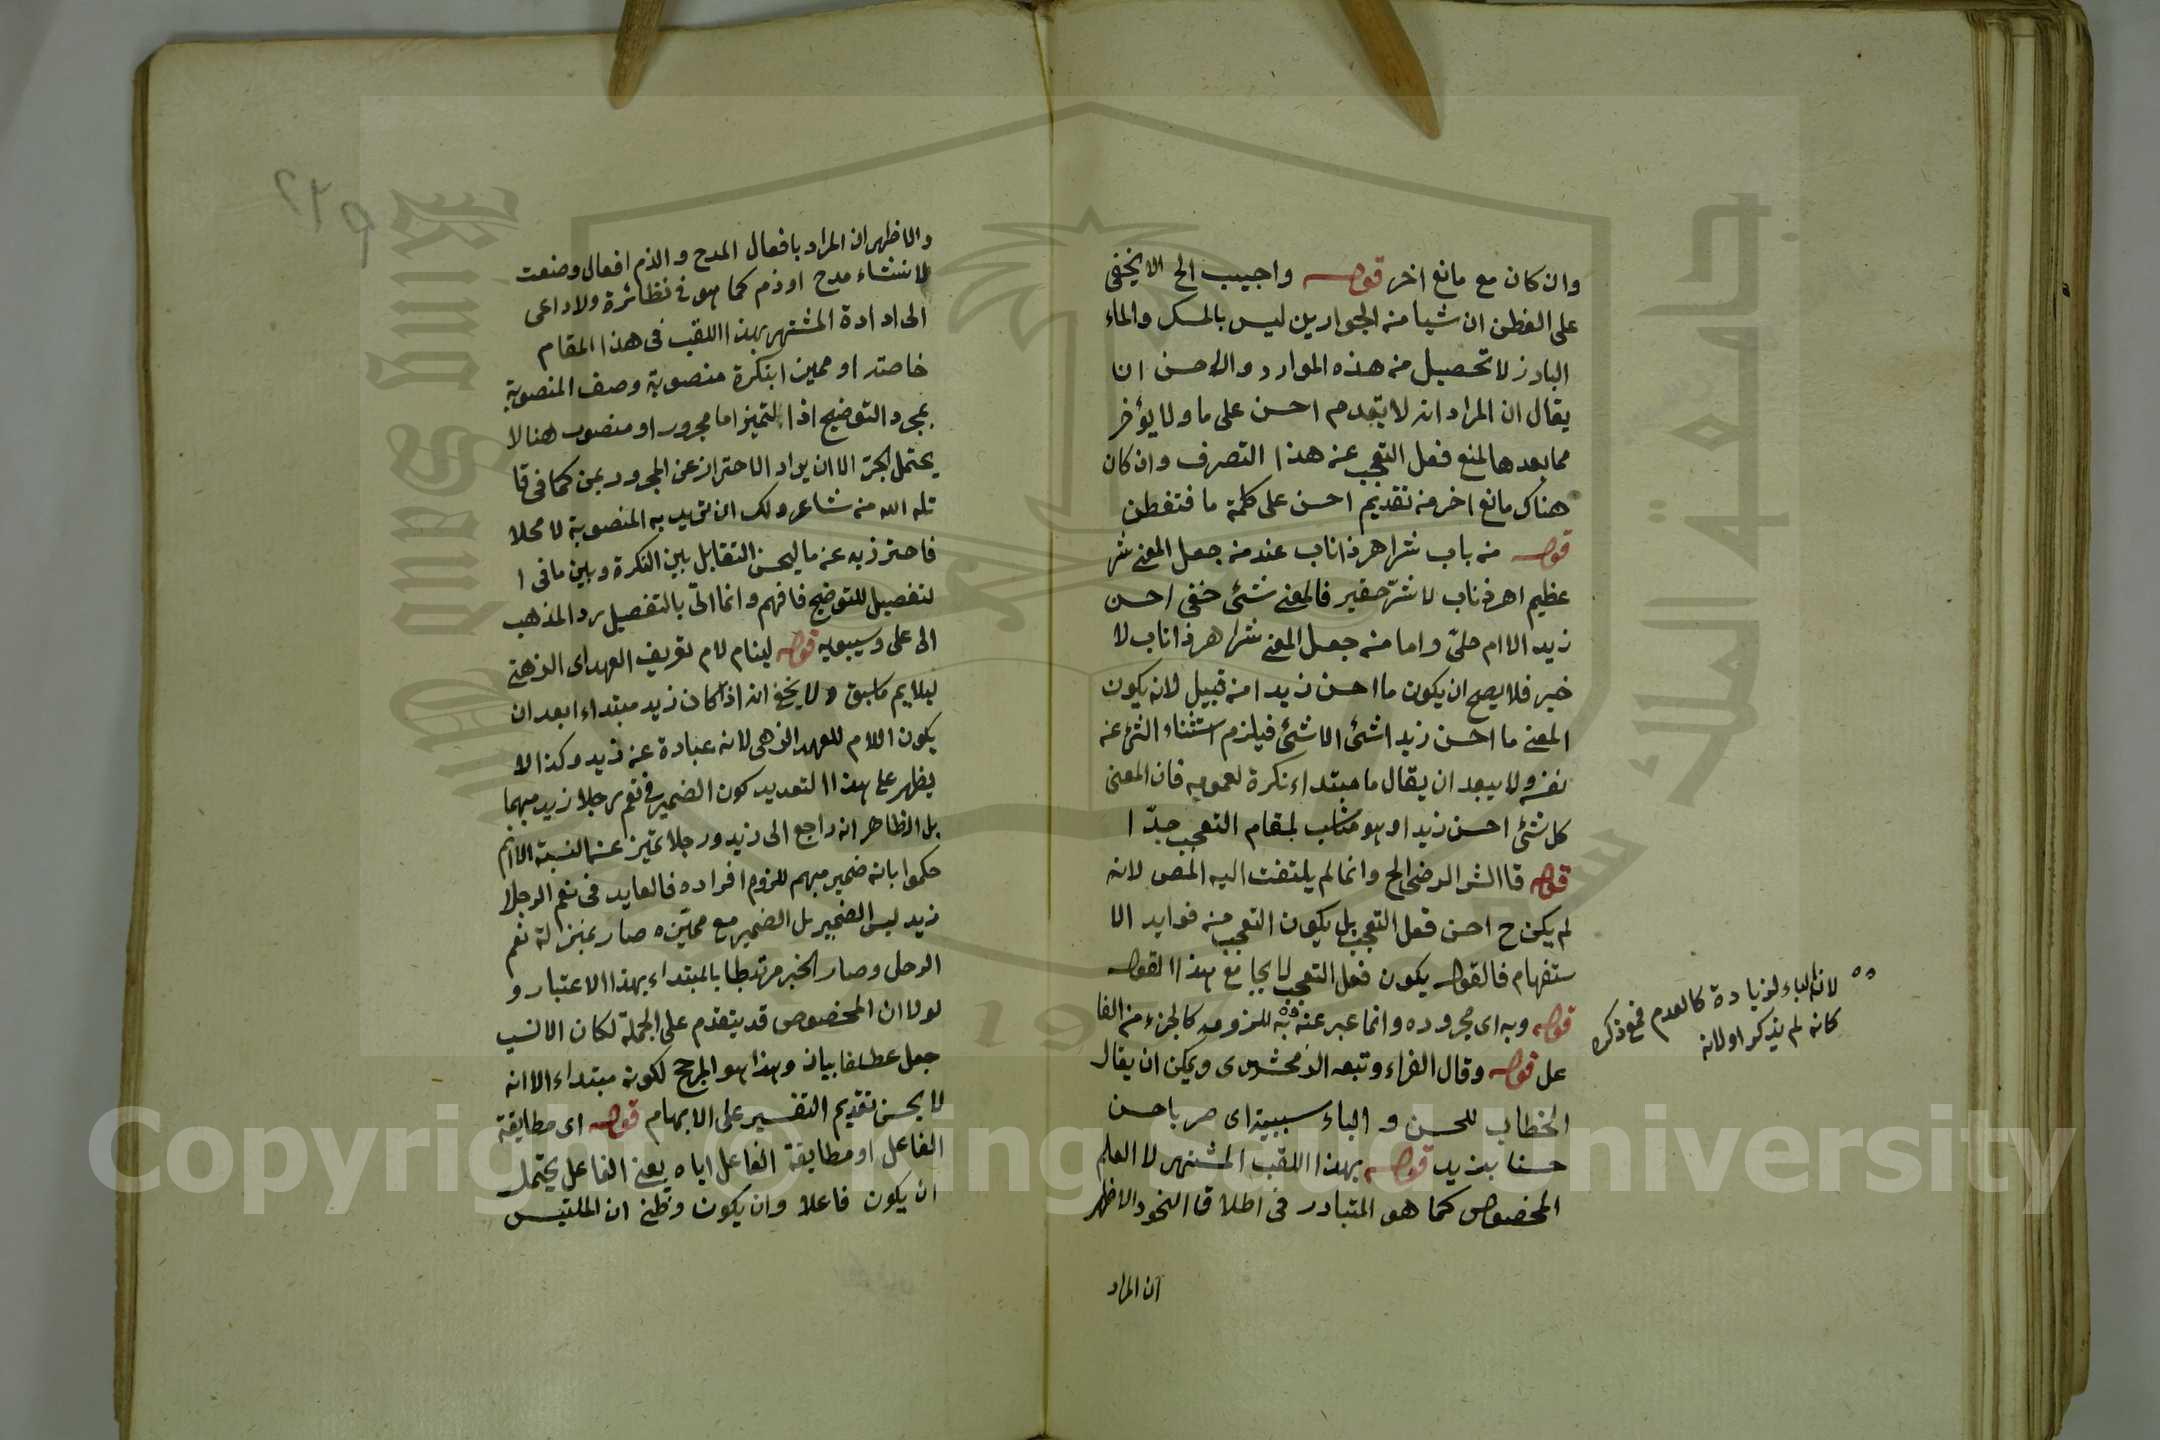 وان كان مع مانع اخر قوله واجيب الخ لا يخفى
على الفطن ان شيا من الجوابين ليس بالمسك والماء
البارد لا تحصيل من هذه الموارد والاحسن ان
يقال ان المراد انه لا يتقدم احسن على ما ولا يؤخر
مما بعدها لمنع فعل التعجب عن هذا التصرف وان كان
هناك مانع اخر من تقديم احسن على كلمة ما فتفطن
قوله من باب شر اهر ذا ناب عند من جعل المعنى شر
عظيم اهر ذا ناب لا شر حقير فالمعنى شئ خفى احسن
زيد الا امر جلىّ واما من جعل المعنى شر اهر ذا ناب لا
خير فلا يصح ان يكون ما احسن زيدا من قبيل لانه يكون
المعنى ما احسن زيدا شئ الا شئ فيلزم استثناء الشئ عن
نفسه ولا يبعد ان يقال ما مبتداء نكرة لعمومه فان المعنى
كل شئ احسن زيدا وهو مناسب لمقام التعجب جدّا
قوله قال الش الرضى الخ وانما لم يلتفت اليه المص لانه
لم يكن ح احسن فعل التعجب بل يكون التعجب من فوايد الا
ستفهام فالقول يكون فعل التعجب لا يجامع هذا القول
قوله وبه اى مجروده وانما عبر عنه به للزومه كالجزء من الفا
عل قوله وقال الفراء وتبعه الزمخشرى ويمكن ان يقال
الخطاب للحسن و الباء سببية اى صر يا حسن
حسنا بزيد قوله بهذا اللقب المشتهر لا العلم
المخصوص كما هو المتبادر فى اطلاقا النحو والاظهر
ان المراد
لانه الباء لزيادة كالعدم فمع ذكره
كانه لم يذكر او لانه
٢٣٩
والاظهر ان المراد بافعال المدح والذم افعال وضعت
لانشاء مدح او ذم كما هو فى نظائره ولا داعى
الى ارادة المشتهر بهذا اللقب فى هذا المقام
خاصة او مميزا بنكرة منصوبة وصف المنصوبة
بمجرد التوضيح اذا التميز اما مجرور او منصوب هنا لا
يحتمل الجر الا ان يراد الاحتراز عن المجرور بمن كما فى قا
تله الله من شاعر ولك ان تريد به المنصوبة لا محلا
فاحترز به عن ما ليحسن التقابل بين النكرة وبين ما فى ا
لتفصيل للتوضيح فافهم وانما اتى بالتفصيل رد المذهب
ابى على وسيبويه قوله لينام لام تعريف العهد اى الذهنى
ليلايم ما سبق ولا يخفى انه اذا كان زيد مبتداء ابعد ان
يكون اللام للعهد الذهنى لانه عبارة عن زيد وكذا لا
يظهر على هذا التعديد كون الضمير فى نعم رجلا زيد مبهما
بل الظاهر انه راجع الى زيد ورجلا تميز عن النسبة الا انهم
حكموا بانه ضمير مبهم للزوم افراده فالعايد فى نعم الرجل
زيد ليس الضمير بل الضمير مع مميّزه صار بمنزلة نعم
الرجل وصار الخبر مرتبطا بالمبتداء بهذا الاعتبار و
لولا ان المخصوص قد يتقدم على الجملة لكان الانسب
جعل عطفا بيان وهذا هو المرجح لكونه مبتداء الا انه
لا يحسن تقديم التفسير على الابهام قوله اى مطابقة
الفاعل او مطابقة الفاعل اياه يعنى الفاعل يحتمل
ان يكون فاعلا وان يكون وظنى ان الملتبس
Copyright © King Saud University
King Saud University
جامعة الملك سعود
1957